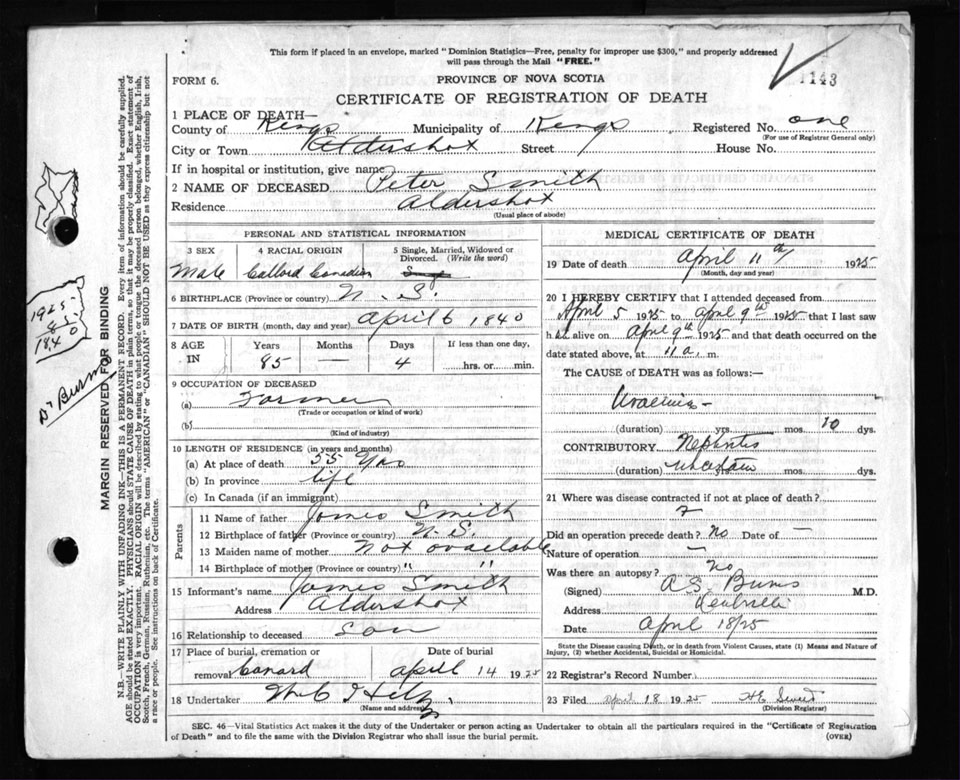 This form if placed in an envelope, marked "Dominion Statistics—Free, penalty for improper use $300," and properly addressed
will pass through the Mail "FREE."
FORM 6.
PROVINCE OF NOVA SCOTIA
1143
CERTIFICATE OF REGISTRATION OF DEATH
1 PLACE OF DEATH—
County of Kings Municipality of Kings Registered No. one
(For use of Registrar General only)
City or Town Aldershot Street House No.
If in hospital or institution, give name
2 NAME OF DECEASED Peter Smith
Residence Aldershot
(Usual place of abode)
PERSONAL AND STATISTICAL INFORMATION
3 SEX 4 RACIAL ORIGIN 5 Single, Married, Widowed or Divorced. (Write the word)
Male Collord Canadian
6 BIRTHPLACE (Province or country) N. S.
7 DATE OF BIRTH (month, day and year) April 6 1840
8 AGE IN Years Months Days If less than one day,
85 — 4 hrs. or min.
9 OCCUPATION OF DECEASED
(a) Farmer
(Trade or occupation or kind of work)
(b)
(Kind of industry)
10 LENGTH OF RESIDENCE (in years and months)
(a) At place of death 55 Yrs
(b) In province life
(c) In Canada (if an immigrant)
Parents
11 Name of father James Smith
12 Birthplace of father (Province or country) N. S.
13 Maiden name of mother Not available
14 Birthplace of mother (Province or country) " "
15 Informant's name James Smith
Address Aldershot
16 Relationship to deceased son
17 Place of burial, cremation or removal Date of burial
Canard April 14 1925
18 Undertaker
(Name and address)
MEDICAL CERTIFICATE OF DEATH
19 Date of death April 11th 1925
(Month, day and year)
20 I HEREBY CERTIFY that I attended deceased from
April 5 1925 to April 9th 1925 that I last saw
h alive on April 9th 1925 and that death occurred on the
date stated above, at 11 a. m.
The CAUSE of DEATH was as follows:—
Uraemia -
(duration) yrs. mos. 10 dys.
CONTRIBUTORY Nephritis
(duration) uncertain
21 Where was disease contracted if not at place of death?
?
Did an operation precede death? No Date of —
Nature of operation —
Was there an autopsy? No
(Signed) A. S. Burns M.D.
Address Kentville
Date April 18/25
State the Disease causing Death, or in death from Violent Causes, state (1) Means and Nature of
Injury, (2) whether Accidental, Suicidal or Homicidal.
22 Registrar's Record Number
23 Filed April 18 1925
(Division Registrar)
SEC. 46—Vital Statistics Act makes it the duty of the Undertaker or person acting as Undertaker to obtain all the particulars required in the "Certificate of Registration
of Death" and to file the same with the Division Registrar who shall issue the burial permit.
(OVER)
MARGIN RESERVED FOR BINDING
N.B.—WRITE PLAINLY WITH UNFADING INK—THIS IS A PERMANENT RECORD. Every item of information should be carefully supplied.
AGE should be stated EXACTLY. PHYSICIANS should STATE CAUSE OF DEATH in plain terms, so that it may be properly classified. Exact statement of
OCCUPATION is very important. RACIAL ORIGIN will be described by stating to what people or tongue the deceased person belonged, whether English, Irish,
Scotch, French, German, Russian, Ruthenian, etc. The terms "AMERICAN" or "CANADIAN" SHOULD NOT BE USED as they express citizenship but not
a race or people. See instructions on back of Certificate.
1925
85
1840
Dr Burns